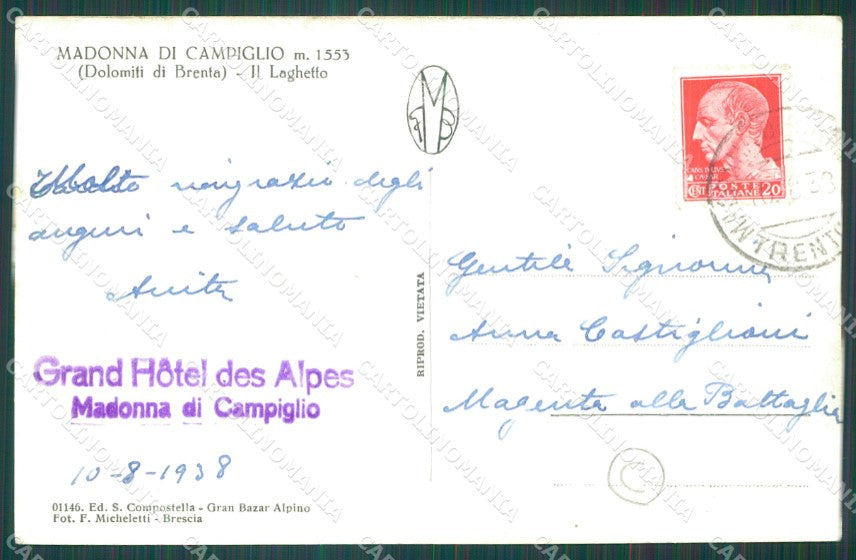 MADONNA DI CAMPIGLIO m. 1553
(Dolomiti di Brenta) - Il Laghetto
Molto ringrazio degli
auguri e saluto
Anita
Grand Hôtel des Alpes
Madonna di Campiglio
10-8-1938
01146. Ed. S. Compostella - Gran Bazar Alpino
Fot. F. Micheletti - Brescia
RIPROD. VIETATA
CENT. POSTE ITALIANE 20
TRENTO
Gentile Signorina
Anna Castiglioni
Magenta alla Battaglia
C
CARTOLINOMANIA